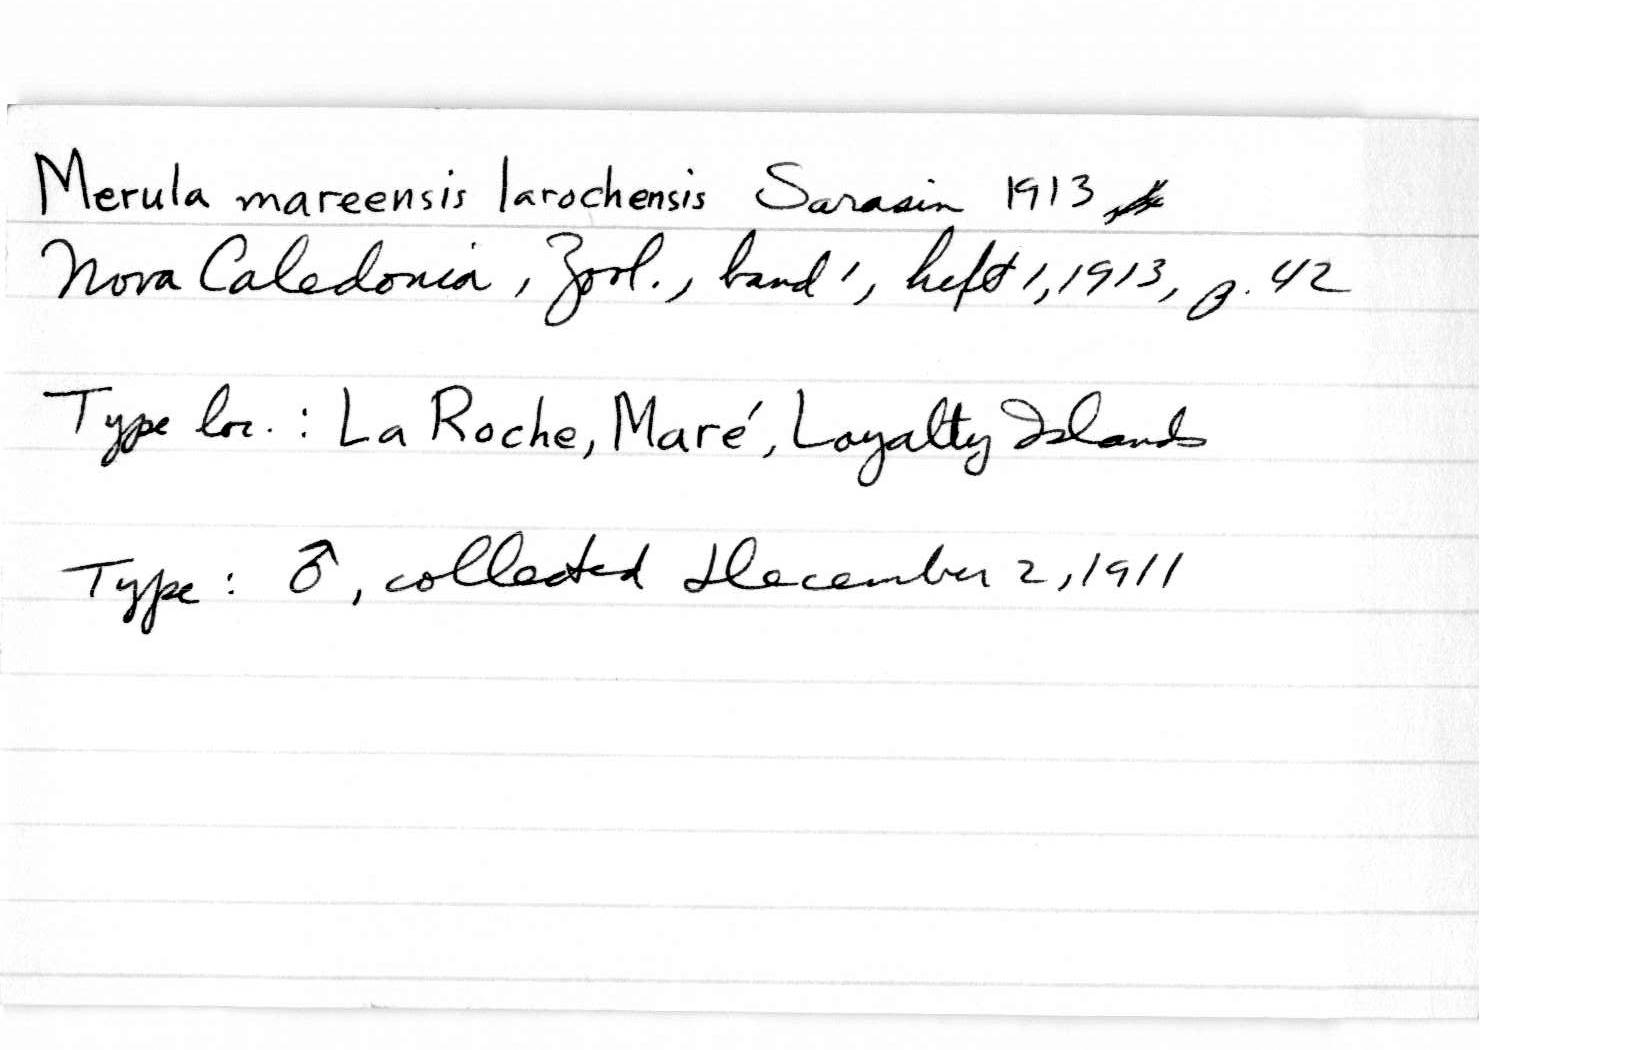 Merula mareensis larochensis Sarasin 1913
Nova Caledonia, Zool., band 1, heft 1, 1913, p. 42
Type loc. : La Roche, Maré, Loyalty Islands
Type : ♂, collected December 2, 1911